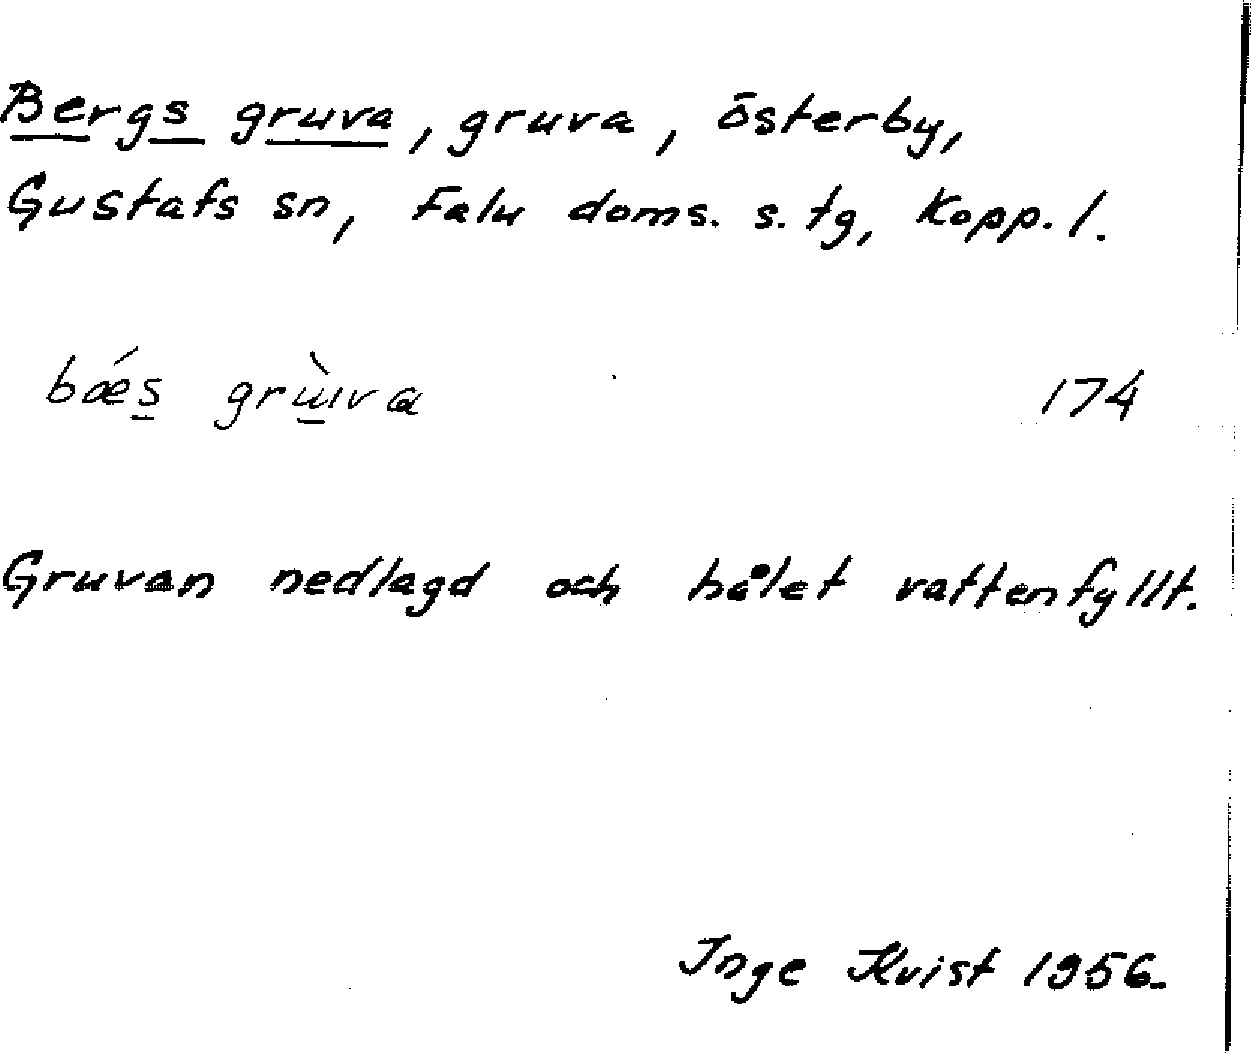 Bergs gruva, gruva, Österby,
Gustafs sn, Falu doms. s. tg, Kopp. l.
bǽs grùva 174
Gruvan nedlagd och hålet vattenfyllt.
Inge Kvist 1956.